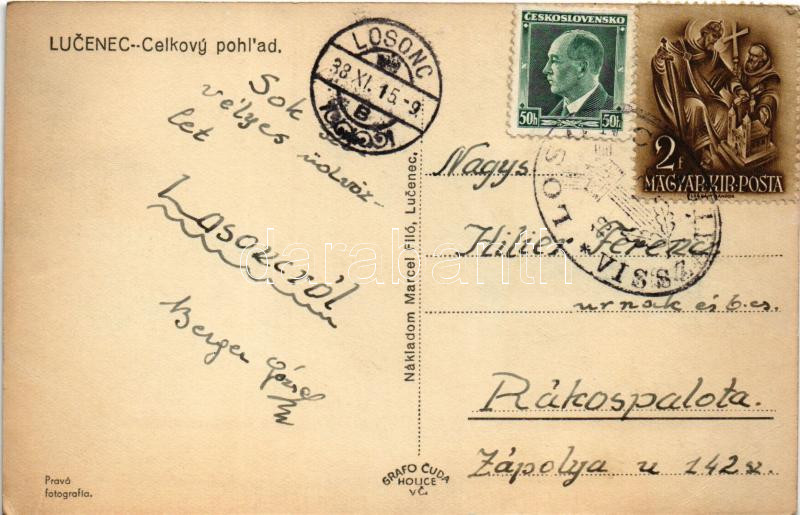 LUČENEC--Celkový pohľad.
LOSONC
38.XI.15.-9
B
ČESKOSLOVENSKO
50h 50h
2f
MAGYAR·KIR·POSTA
Sok
vélyes
üdvöz-
let
Losoncról
Berger József
Nagys
Hilier Ferenc
urnak és b. cs.
Rákospalota.
Zápolya u 142 sz.
LOSONC
VISSZATÉRT
938
Nákladom Marcel Filó, Lučenec.
Pravá
fotografia.
GRAFO ČUDA
HOLICE
V Č.
darabanth